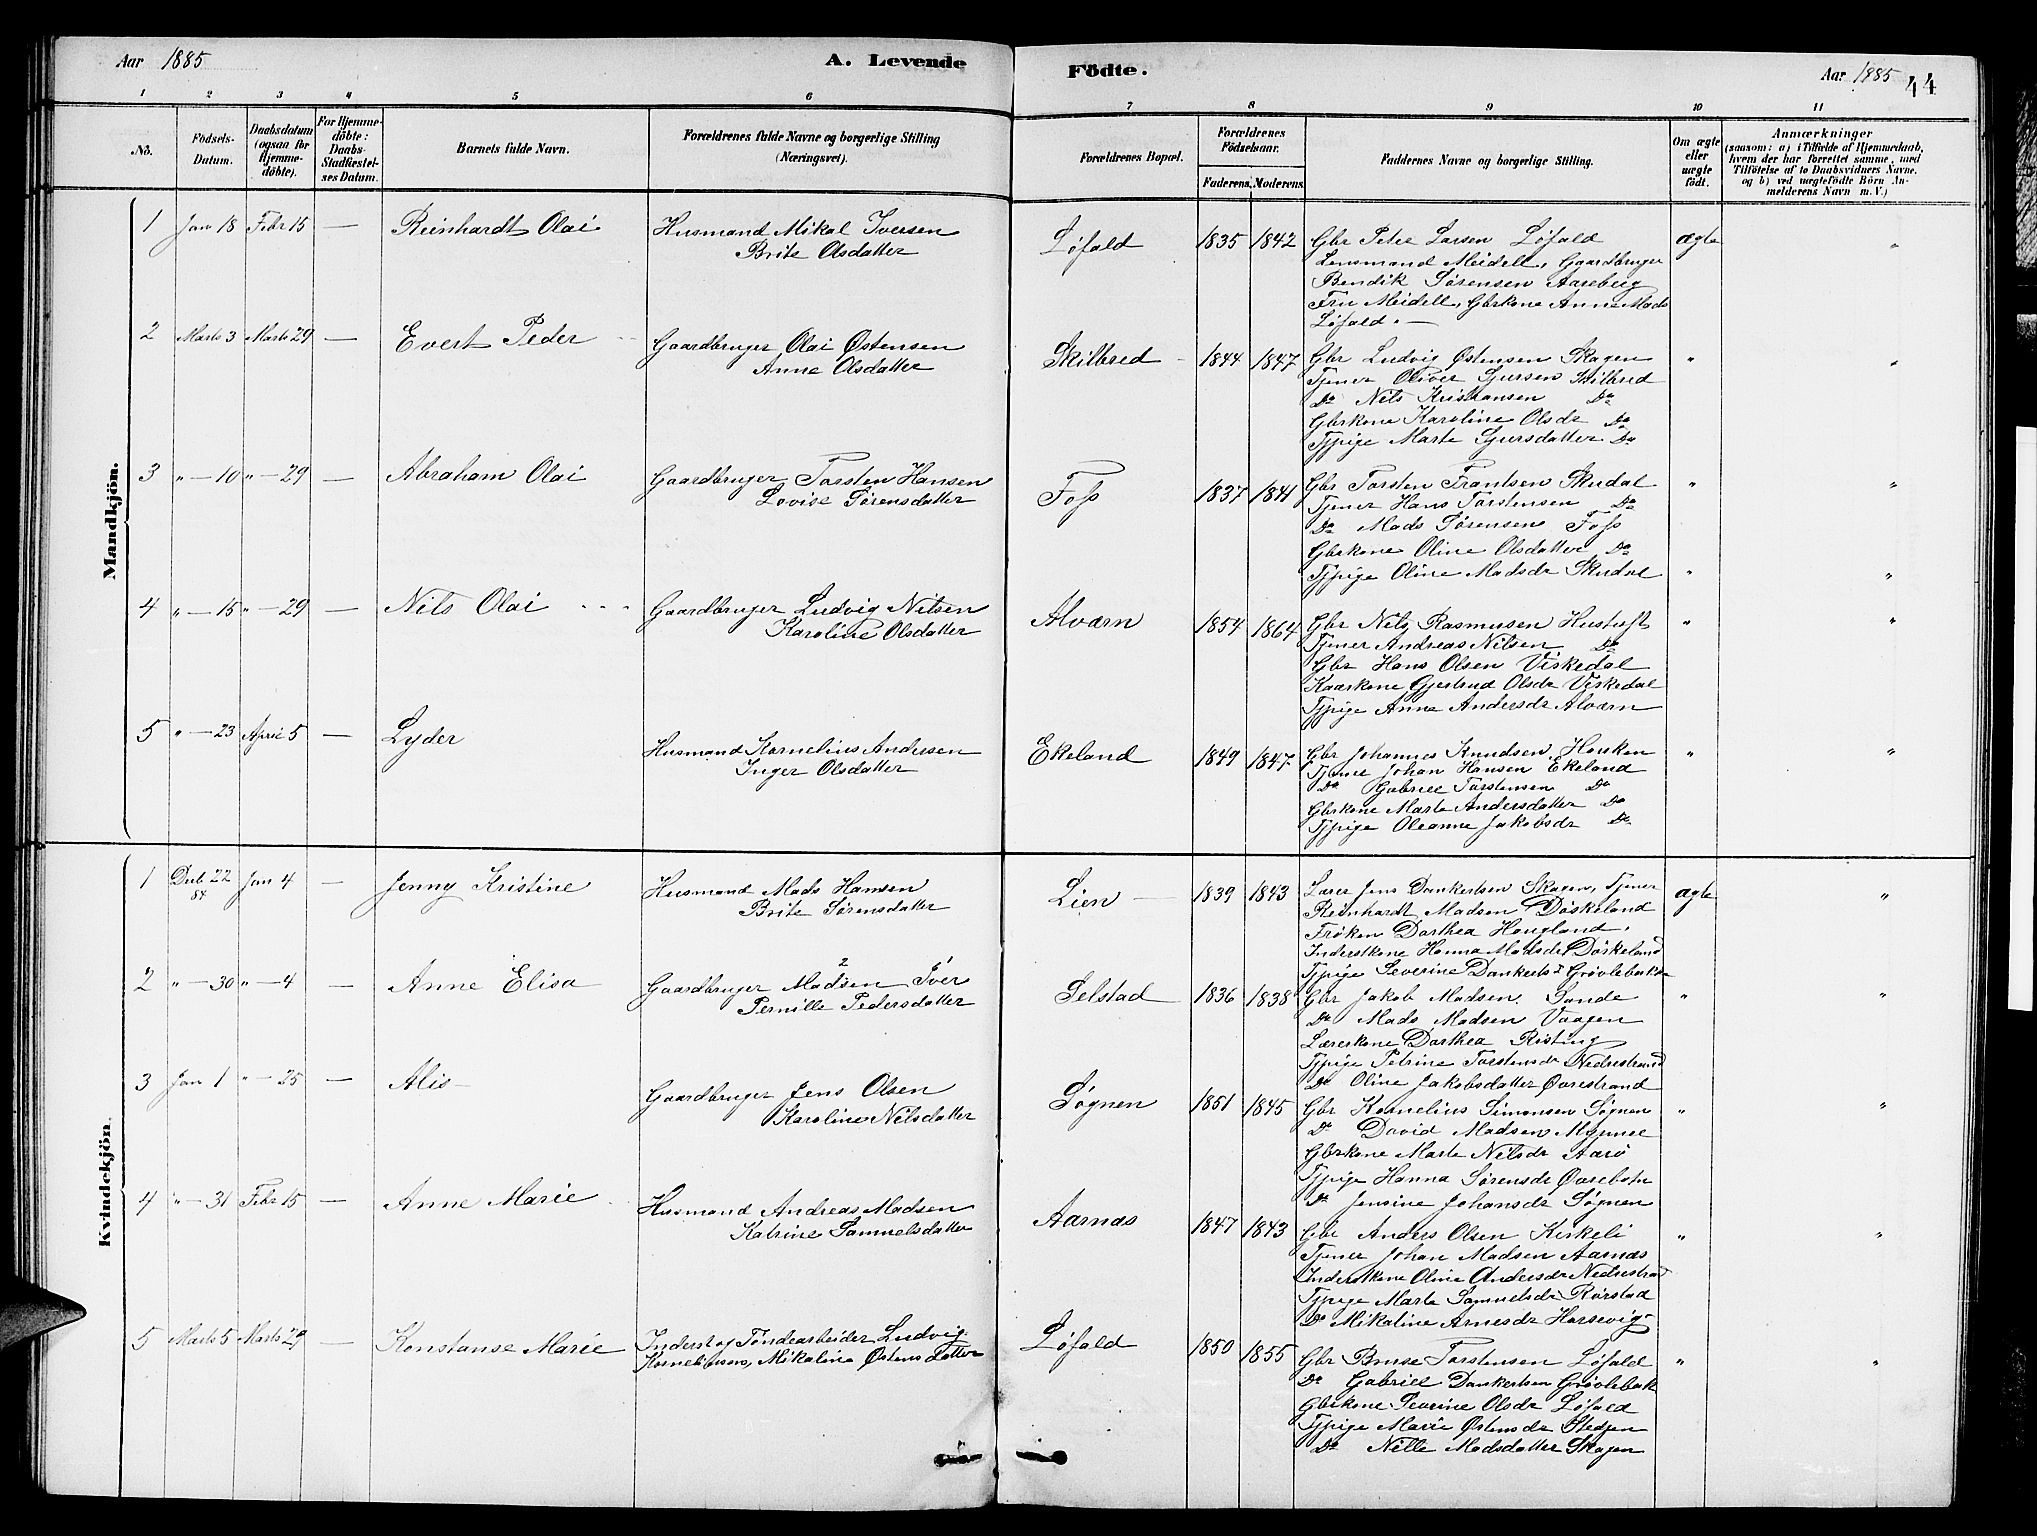 Aar 1885
A. Levende
Födte.
Aar 1885
44
1 2 3 4 5 6 7 8 9 10 11
No.
Födsels-
Datum.
Daabsdatum
(ogsaa for
Hjemme-
döbte).
For Hjemme-
döbte:
Daabs-
Stadfæstel-
ses Datum.
Barnets fulde Navn.
Forældrenes fulde Navne og borgerlige Stilling
(Næringsvei).
Forældrenes Bopæl.
Forældrenes
Födselsaar.
Faderens. Moderens.
Faddernes Navne og borgerlige Stilling.
Om ægte
eller
uægte
födt.
Anmærkninger
(saasom: a) i Tilfælde af Hjemmedaab,
hvem der har forrettet samme, med
Tilföielse af to Daabsvidners Navne.
og b) ved uægtefödte Börn An-
melderens Navn m.V.)
Mandkjön.
1 Jan 18 Febr 15 — Reinhardt Olai Husmand Mikal Iversen
Brite Olsdatter
Løfald 1835 1842 Gbr Peter Larsen Løfald ægte "
Lensmand Meidell, Gaardbruger
Bendik Sørensen Aareberg
Fru Meidell, Gbrkone Anne Mads
Løfald. —
2 Marts 3 Marts 29 — Evert Peder Gaardbruger Olai Østensen
Anne Olsdatter
Skilbred 1844 1847 Gbr Ludvig Østensen Skagen " "
Tjener Oliver Sjursen Skilbred
Do Nils Kristiansen Do
Gbrkone Karoline Olsdr Do
Tjpige Marte Sjursdatter Do
3 " — 10 " — 29 — Abraham Olai Gaardbruger Torsten Hansen
Lovise Sørensdatter
Foss 1837 1841 Gbr Torsten Frantsen Skudal " "
Tjener Hans Torstensen Do
Do Mads Sørensen Foss
Gbrkone Oline Olsdatter Do
Tjpige Oline Madsdr Skudal " "
4 " — 15 " — 29 — Nils Olai Gaardbruger Ludvig Nilsen
Karoline Olsdatter
Alværn 1854 1864 Gbr Nils Rasmussen Hustuft " "
Tjener Andreas Nilsen Do
Gbr Hans Olsen Viskedal
Kaarkone Gjertrud Olsdr Viskedal
Tjpige Anne Andersdr Alværn
5 " — 23 April 5 — Lyder Husmand Kornelius Andersen
Inger Olsdatter
Ekeland 1849 1847 Gbr Johannes Knudsen Hersken " "
Tjener Johan Hansen Ekeland
Do Gabriel Torstensen Do
Gbrkone Marte Andersdatter Do
Tjpige Oleanne Jakobsdr Do
Kvindekjön.
1 Decb 22 Jan 4 — Jenny Kristine Husmand Mads Hansen
84
Brite Sørensdatter
Lien 1839 1843 Lærer Jens Dankertsen Skagen, Tjener ægte "
Reinhardt Madsen Døskeland
Frøken Dorthea Hougland,
Inderstkone Hanna Madsdr Døskeland
Tjpige Severine Dankertsdr Grøvlebak
2 " — 30 " — 4 Anne Elisa Gaardbruger Madsen Iver
2 1
Pernille Pedersdatter
Selstad 1836 1838 Gbr Jakob Madsen Sande " "
Do Mads Madsen Vaagen
Lærerkone Dorthea Risting
Tjpige Petrine Torstensdr Nedrestrand
Do Oline Jakobsdatter Øvrestrand
3 Jan 1 " — 25 — Alis Gaardbruger Jens Olsen
Karoline Nilsdatter
Søgnen 1851 1845 Gbr Kornelius Simonsen Søgnen " "
Do David Madsen
Gbrkone Marte Nilsdr Aarø
Tjpige Hanna Sørensdr Øvrebotn
Do Jensine Johansdr Søgnen
4 " — 31 Febr 15 — Anne Marie Husmand Andreas Madsen
Katrine Samuelsdatter
Aarnæs 1847 1843 Gbr Anders Olsen Kirkeli " "
Tjener Johan Madsen Aarnæs
Inderstkone Oline Andersdr Nedrestrad
Tjpige Marte Samuelsdr Rørstad
Do Mikaline Arnesdr Horsevig
5 Marts 5 Marts 29 — Konstanse Marie Inderst og Tøndearbeider Ludvig
Korneliussen, Mikaline Østensdatter
Løfald 1850 1855 Gbr Bruse Torstensen Løfald " "
Do Gabriel Dankertsen Grøvlebak
Gbrkone Severine Olsdr Løfald
Tjpige Marie Østensdr Stedjen
Do Nille Madsdatter Skagen